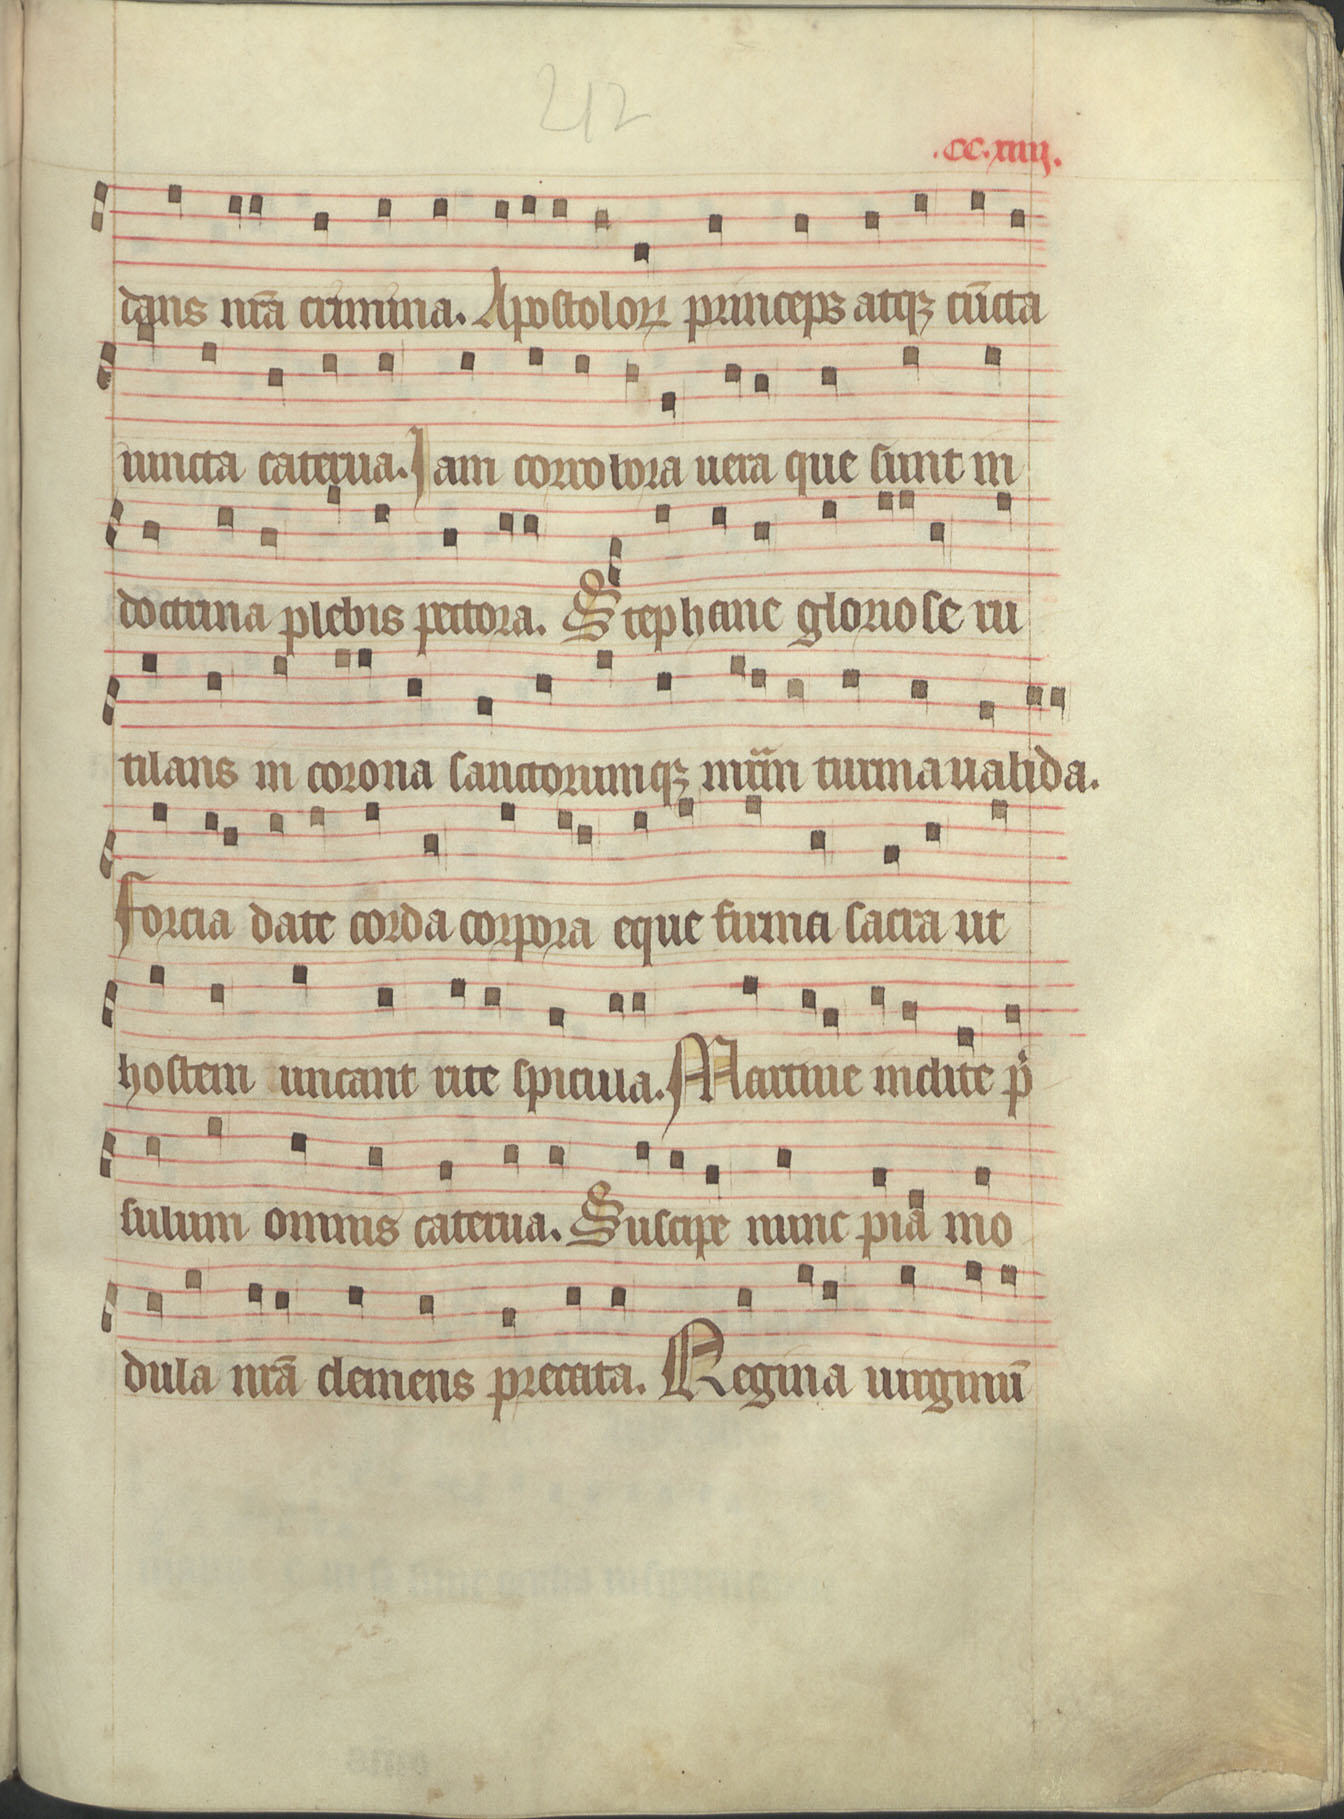 212
.cc.xiiij.
dans nr̄a crimina. Apostoloꝝ princeps atqꝫ cūcta
iuncta caterua. Iam corrobora uera que sunt in
doctrina plebis pectora. Stephane gloriose ru
tilans in corona sanctorumqꝫ
turma ualida.
Forcia date corda corpora eque firma sacra ut
hostem uincant rite spicula. Martine inclite p̄
sulum omnis caterua. Suscipe nunc pia mo
dula nr̄a clemens precata. Regina uirginū